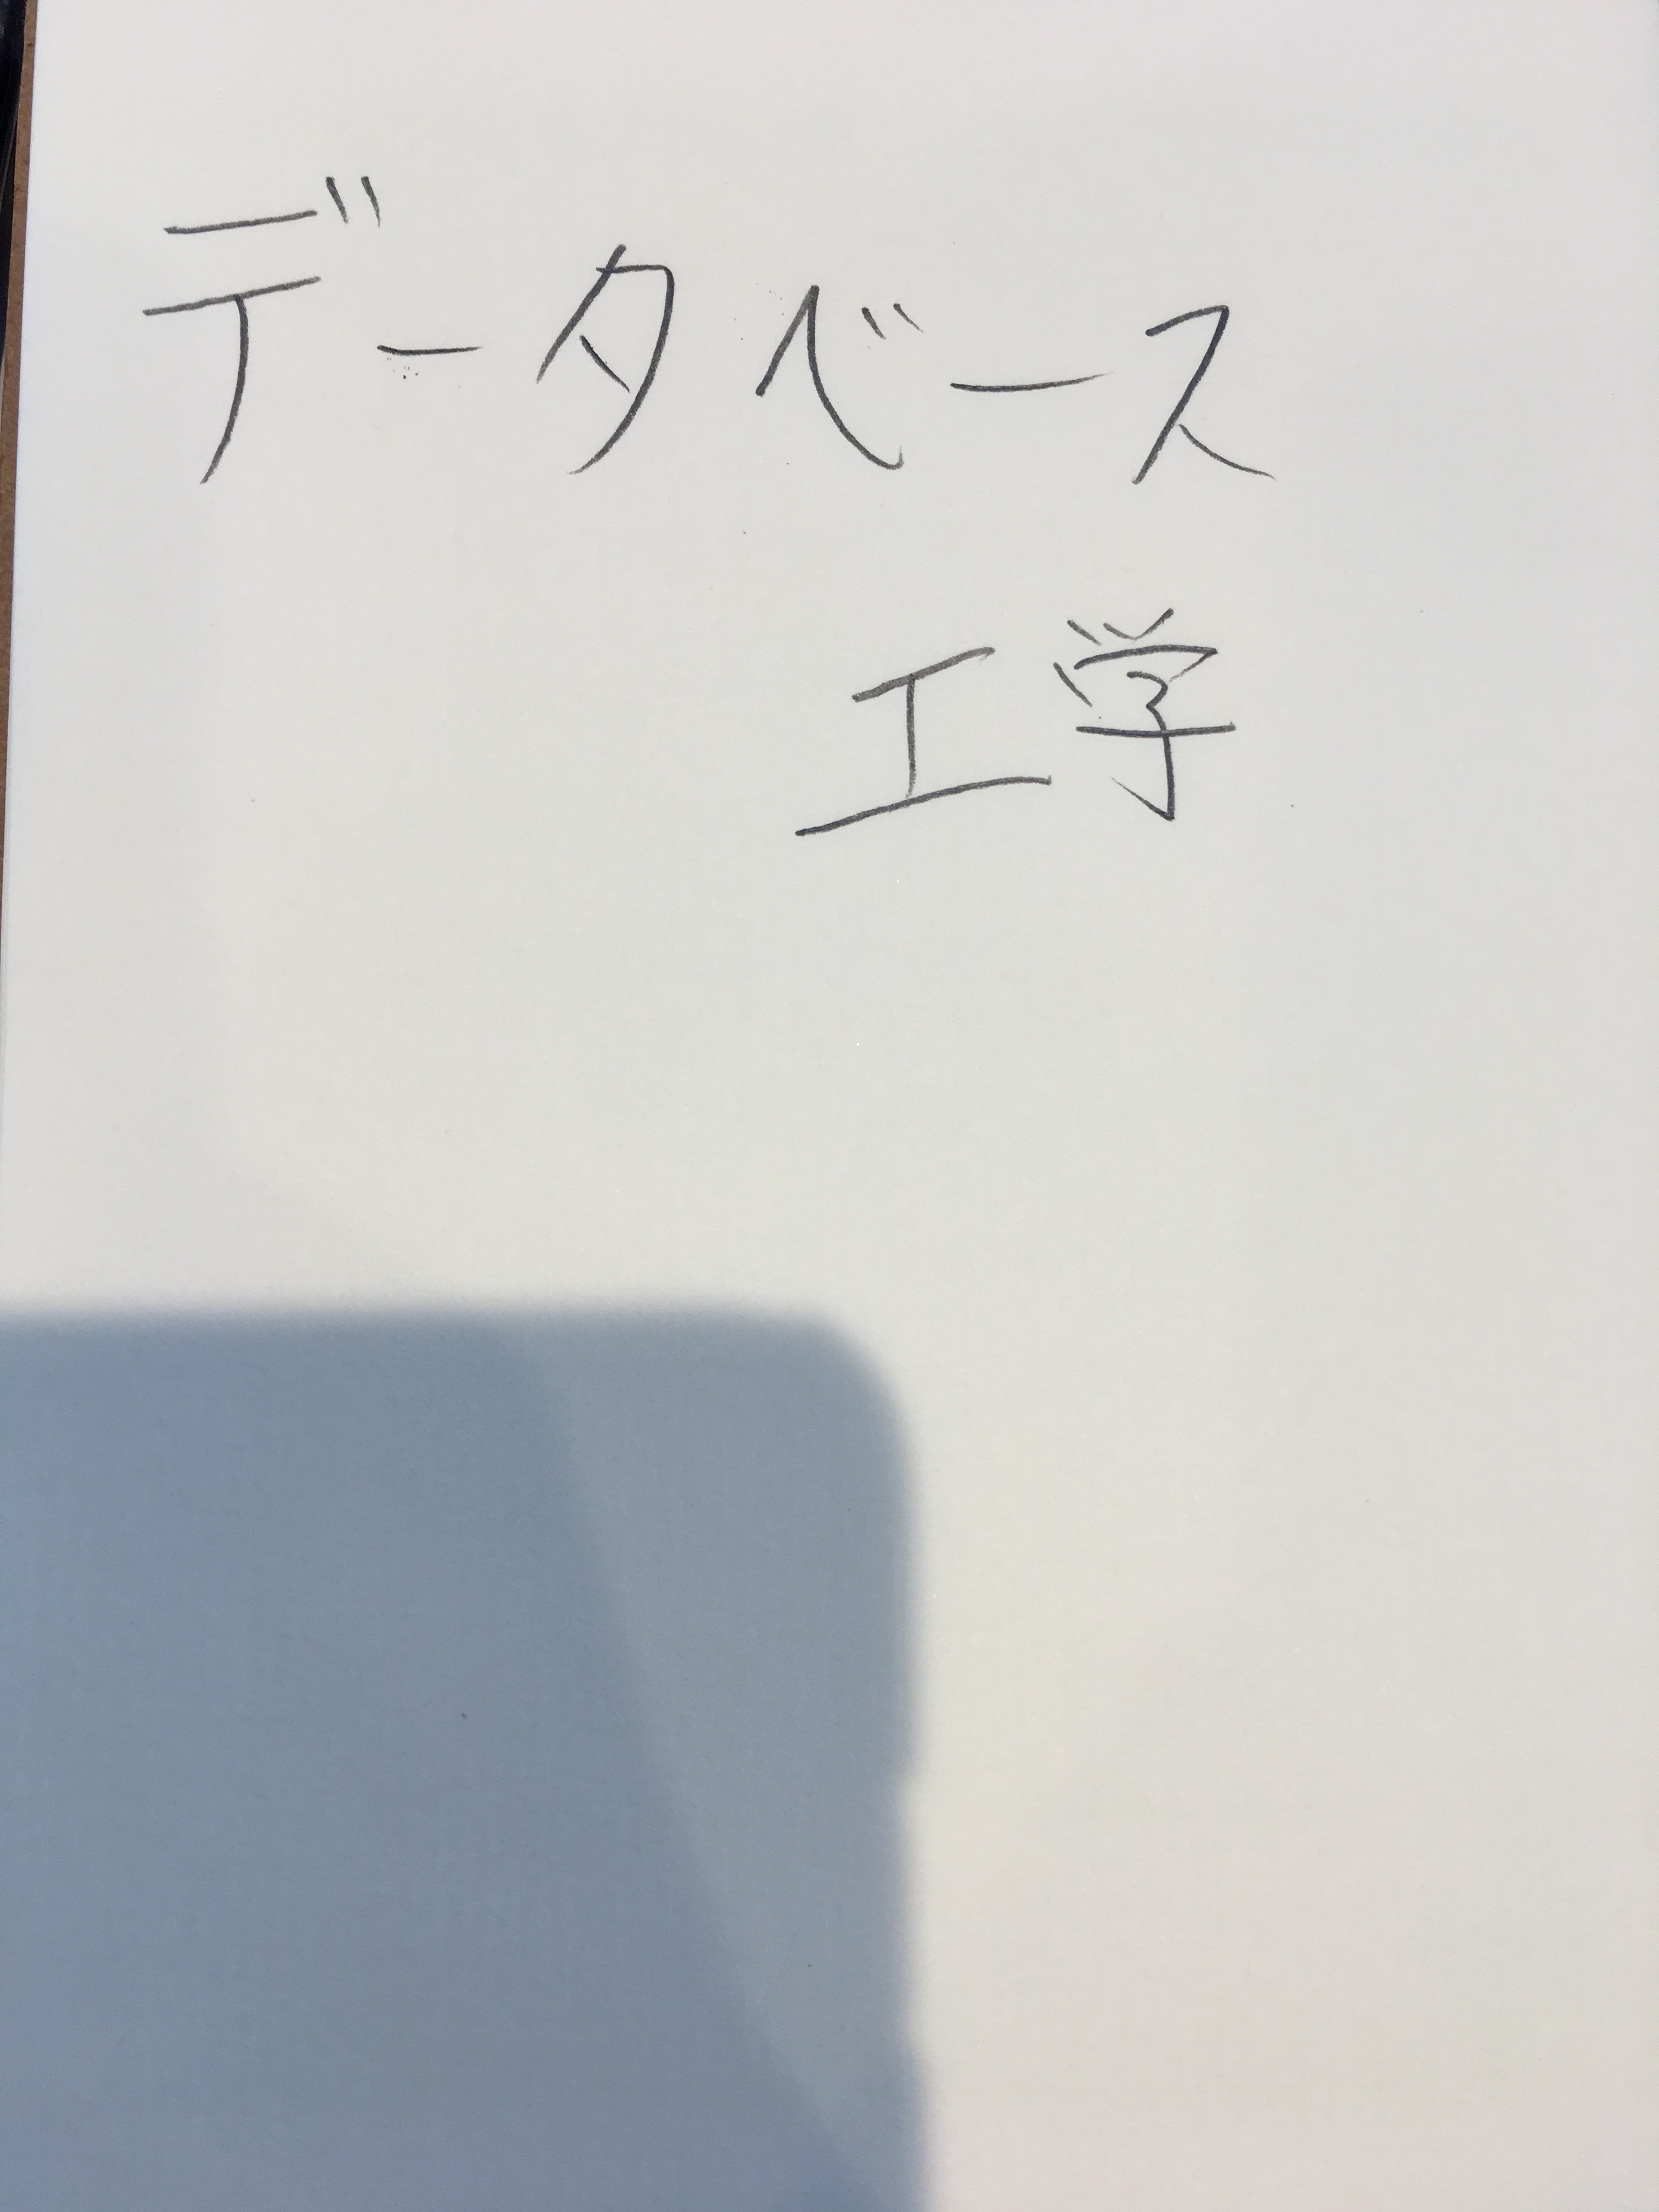 データベース
工学